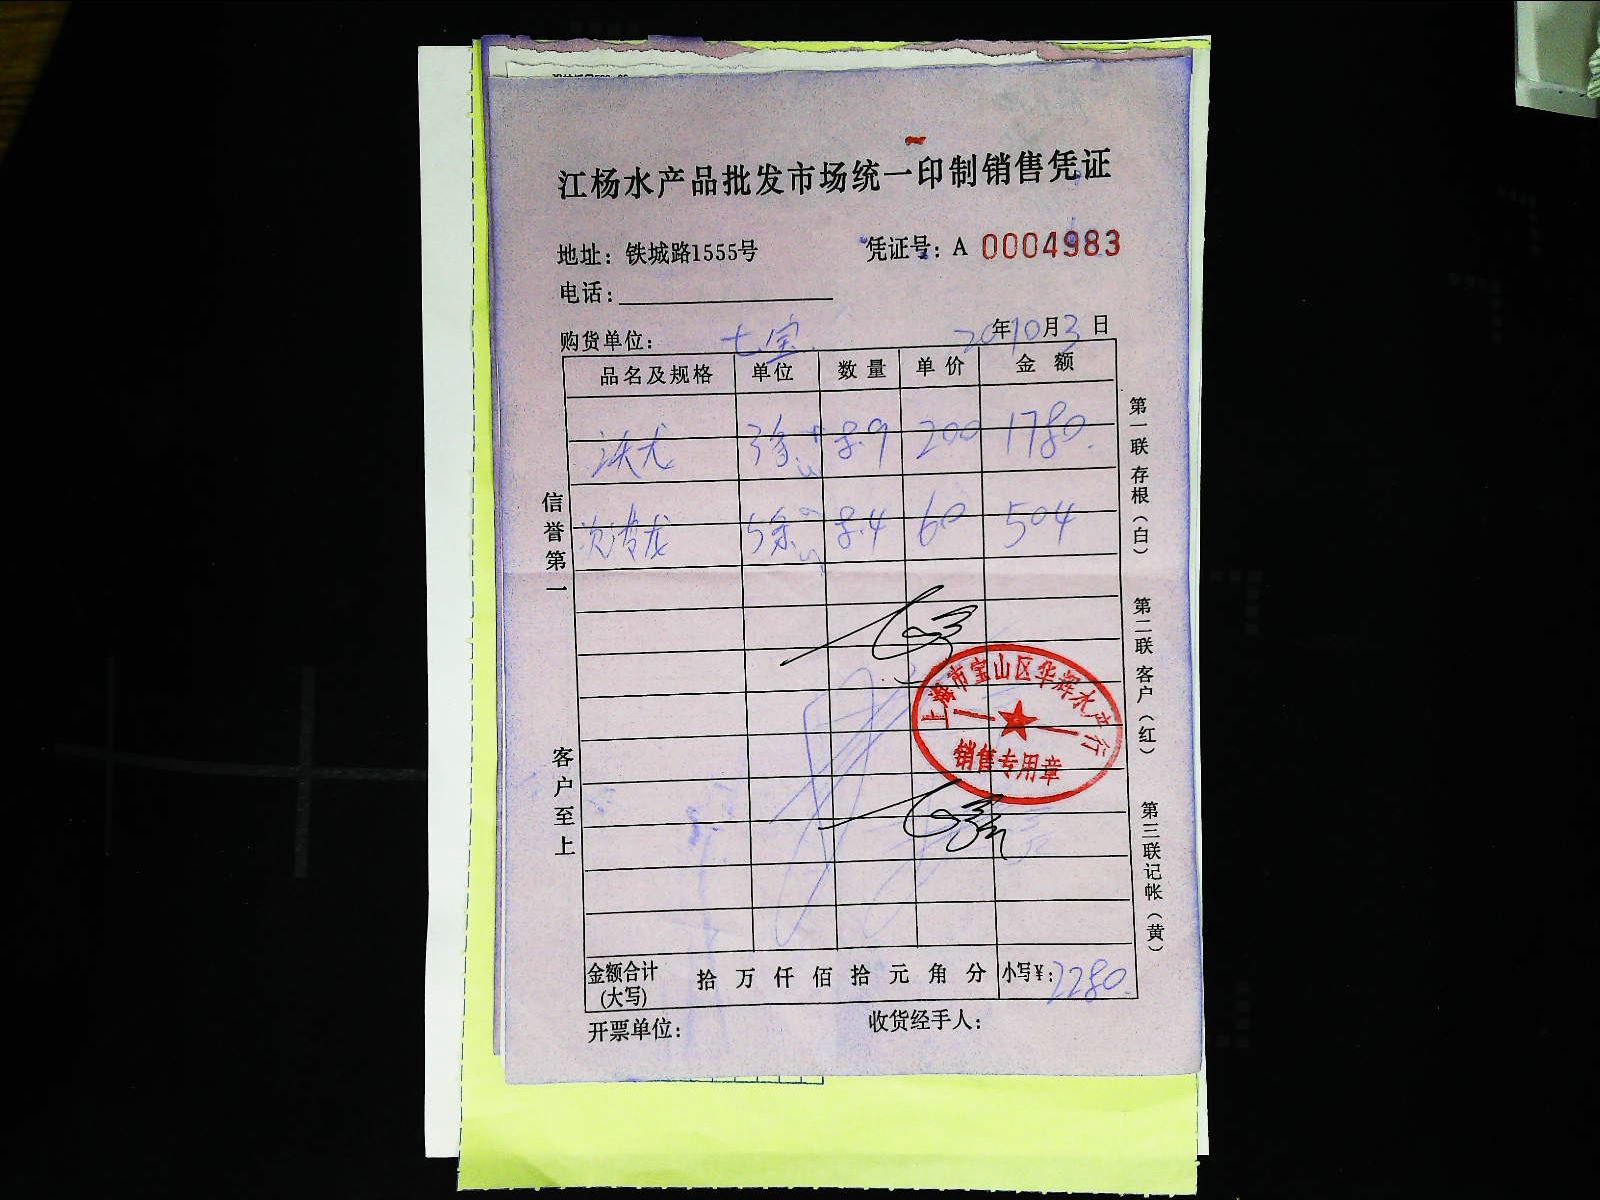 江杨水产品批发市场统一印制销售凭证
地址：铁城路1555号
凭证号：A 0004983
电话：
购货单位：七宝
20年10月3日
品名及规格 单位 数量 单价 金额
8.9 200 1780.
8.4 60 504
金额合计(大写) 拾 万 仟 佰 拾 元 角 分 小写¥：2280.
开票单位：
收货经手人：
信誉第一
客户至上
第一联 存根（白）
第二联 客户（红）
第三联 记帐（黄）
上海市宝山区华辉水产行
销售专用章